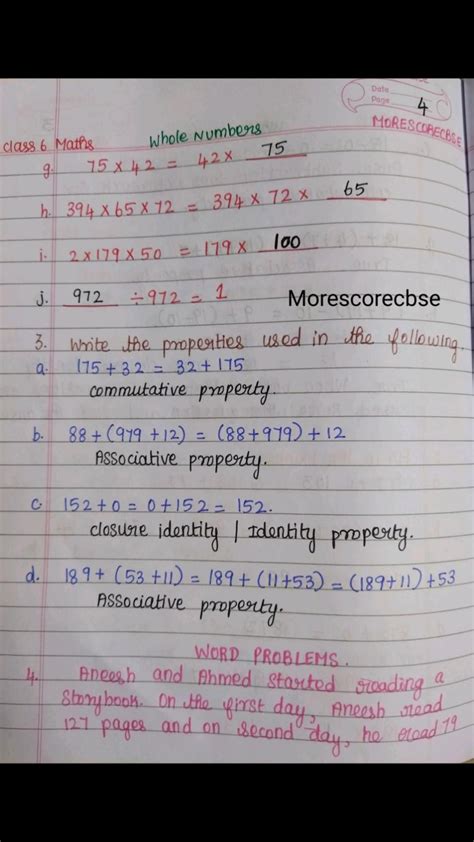 Date
Page 4
MORESCORECBSE
Class 6 Maths Whole Numbers
g. 75 × 42 = 42 × 75
h. 394 × 65 × 72 = 394 × 72 × 65
i. 2 × 179 × 50 = 179 × 100
j. 972 ÷ 972 = 1
Morescorecbse
3. Write the properties used in the following.
a. 175 + 32 = 32 + 175
commutative property.
b. 88 + (979 + 12) = (88 + 979) + 12
Associative property.
c. 152 + 0 = 0 + 152 = 152.
closure identity | Identity property.
d. 189 + (53 + 11) = 189 + (11 + 53) = (189 + 11) + 53
Associative property.
WORD PROBLEMS.
4. Aneesh and Ahmed started reading a
storybook. On the first day, Aneesh read
127 pages and on second day, he read 79